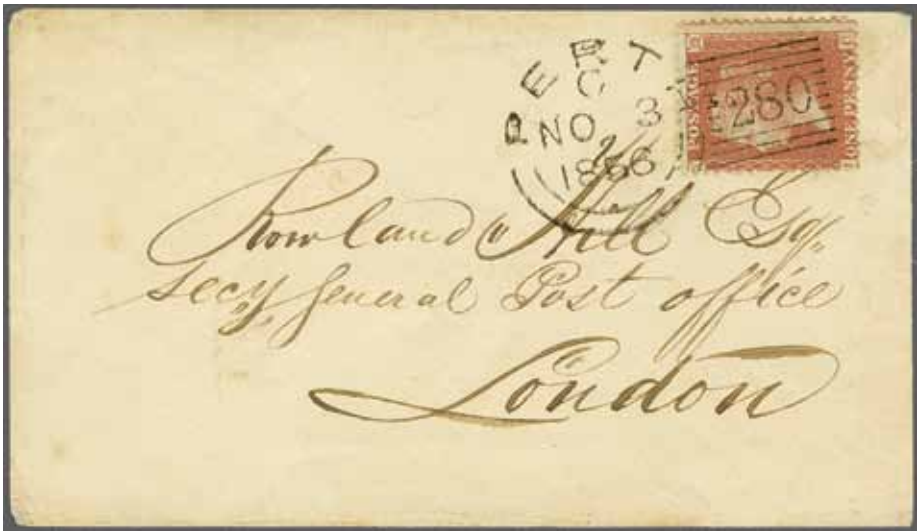 PERTH
C
NO 3
1856
280
POSTAGE
ONE PENNY
Rowland Hill Esq.
Secy General Post office
London